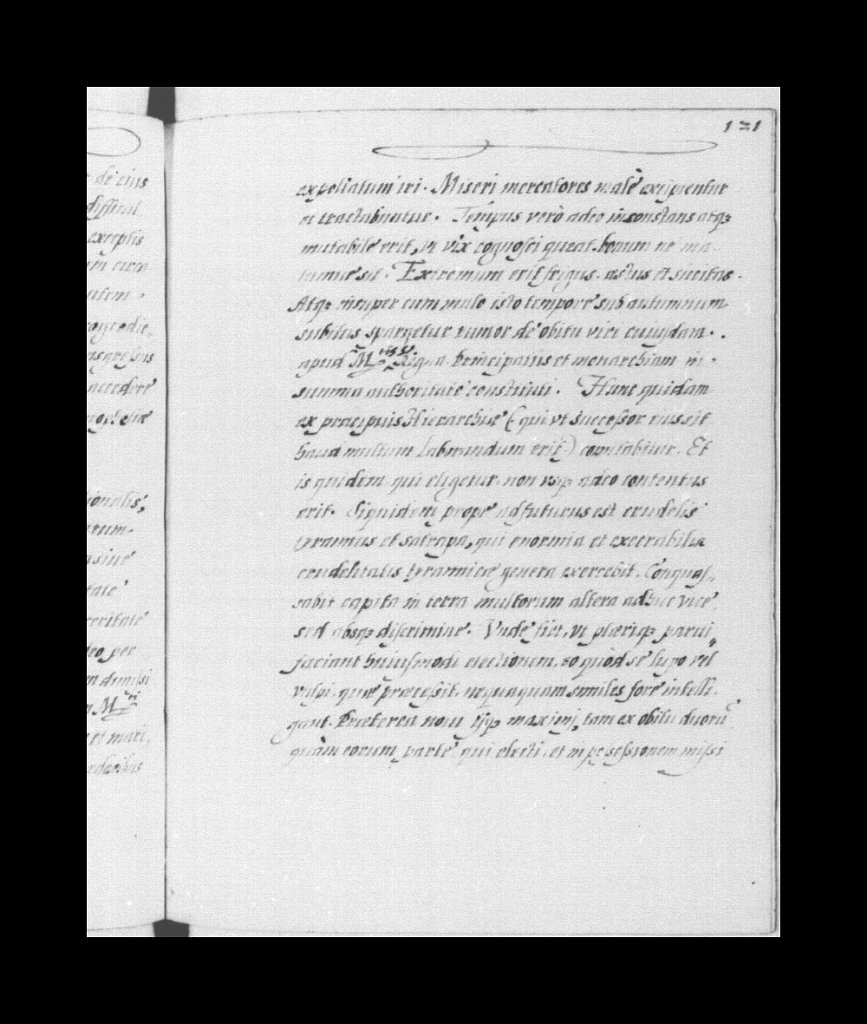 de eius
difficul
exceptis
121
expoliatum iri. Miseri mercatores malè excipientur
et tractabuntur. Tempus verò adeo inconstans atq₃
mutabile erit, vt vix cognosci queat bonum ne ma-
lumue sit. Extremum erit frigus, æstus et siccitas.
Atq₃ insuper cum malo isto tempore sub autumnum
subitus spargetur rumor de obitu viri cuiusdam
apud M. Reg. a Principatus et monarchiam in
summa authoritate constituti. Hunc quidam
ex præcipuis Hierarchiæ (qui vt successor eius sit
haud multum laborandum erit) comitabitur. Et
is quidem qui eligetur non usq₃ adeo contentus
erit. Siquidem prope adfuturus est crudelis
tyrannus et satrapa, qui enormia et execrabilia
crudelitatis tyrannicæ genera exercebit. Conquas-
sabit capita in terra multorum altera adhuc vice
sed absq₃ discrimine. Vnde fiet, vt pleriq₃ parui
faciant huiusmodi electionem, eo quòd se lupo vel
vulpi, quæ præcessit, nequaquam similes fore intelli-
gant. Præterea noui ijq₃ maximi, tam ex obitu duorū
quàm eorum parte, qui electi, et in possessionem missi
ritionalis,
sine
veritate
deo, per
dimissi
M
et mari,